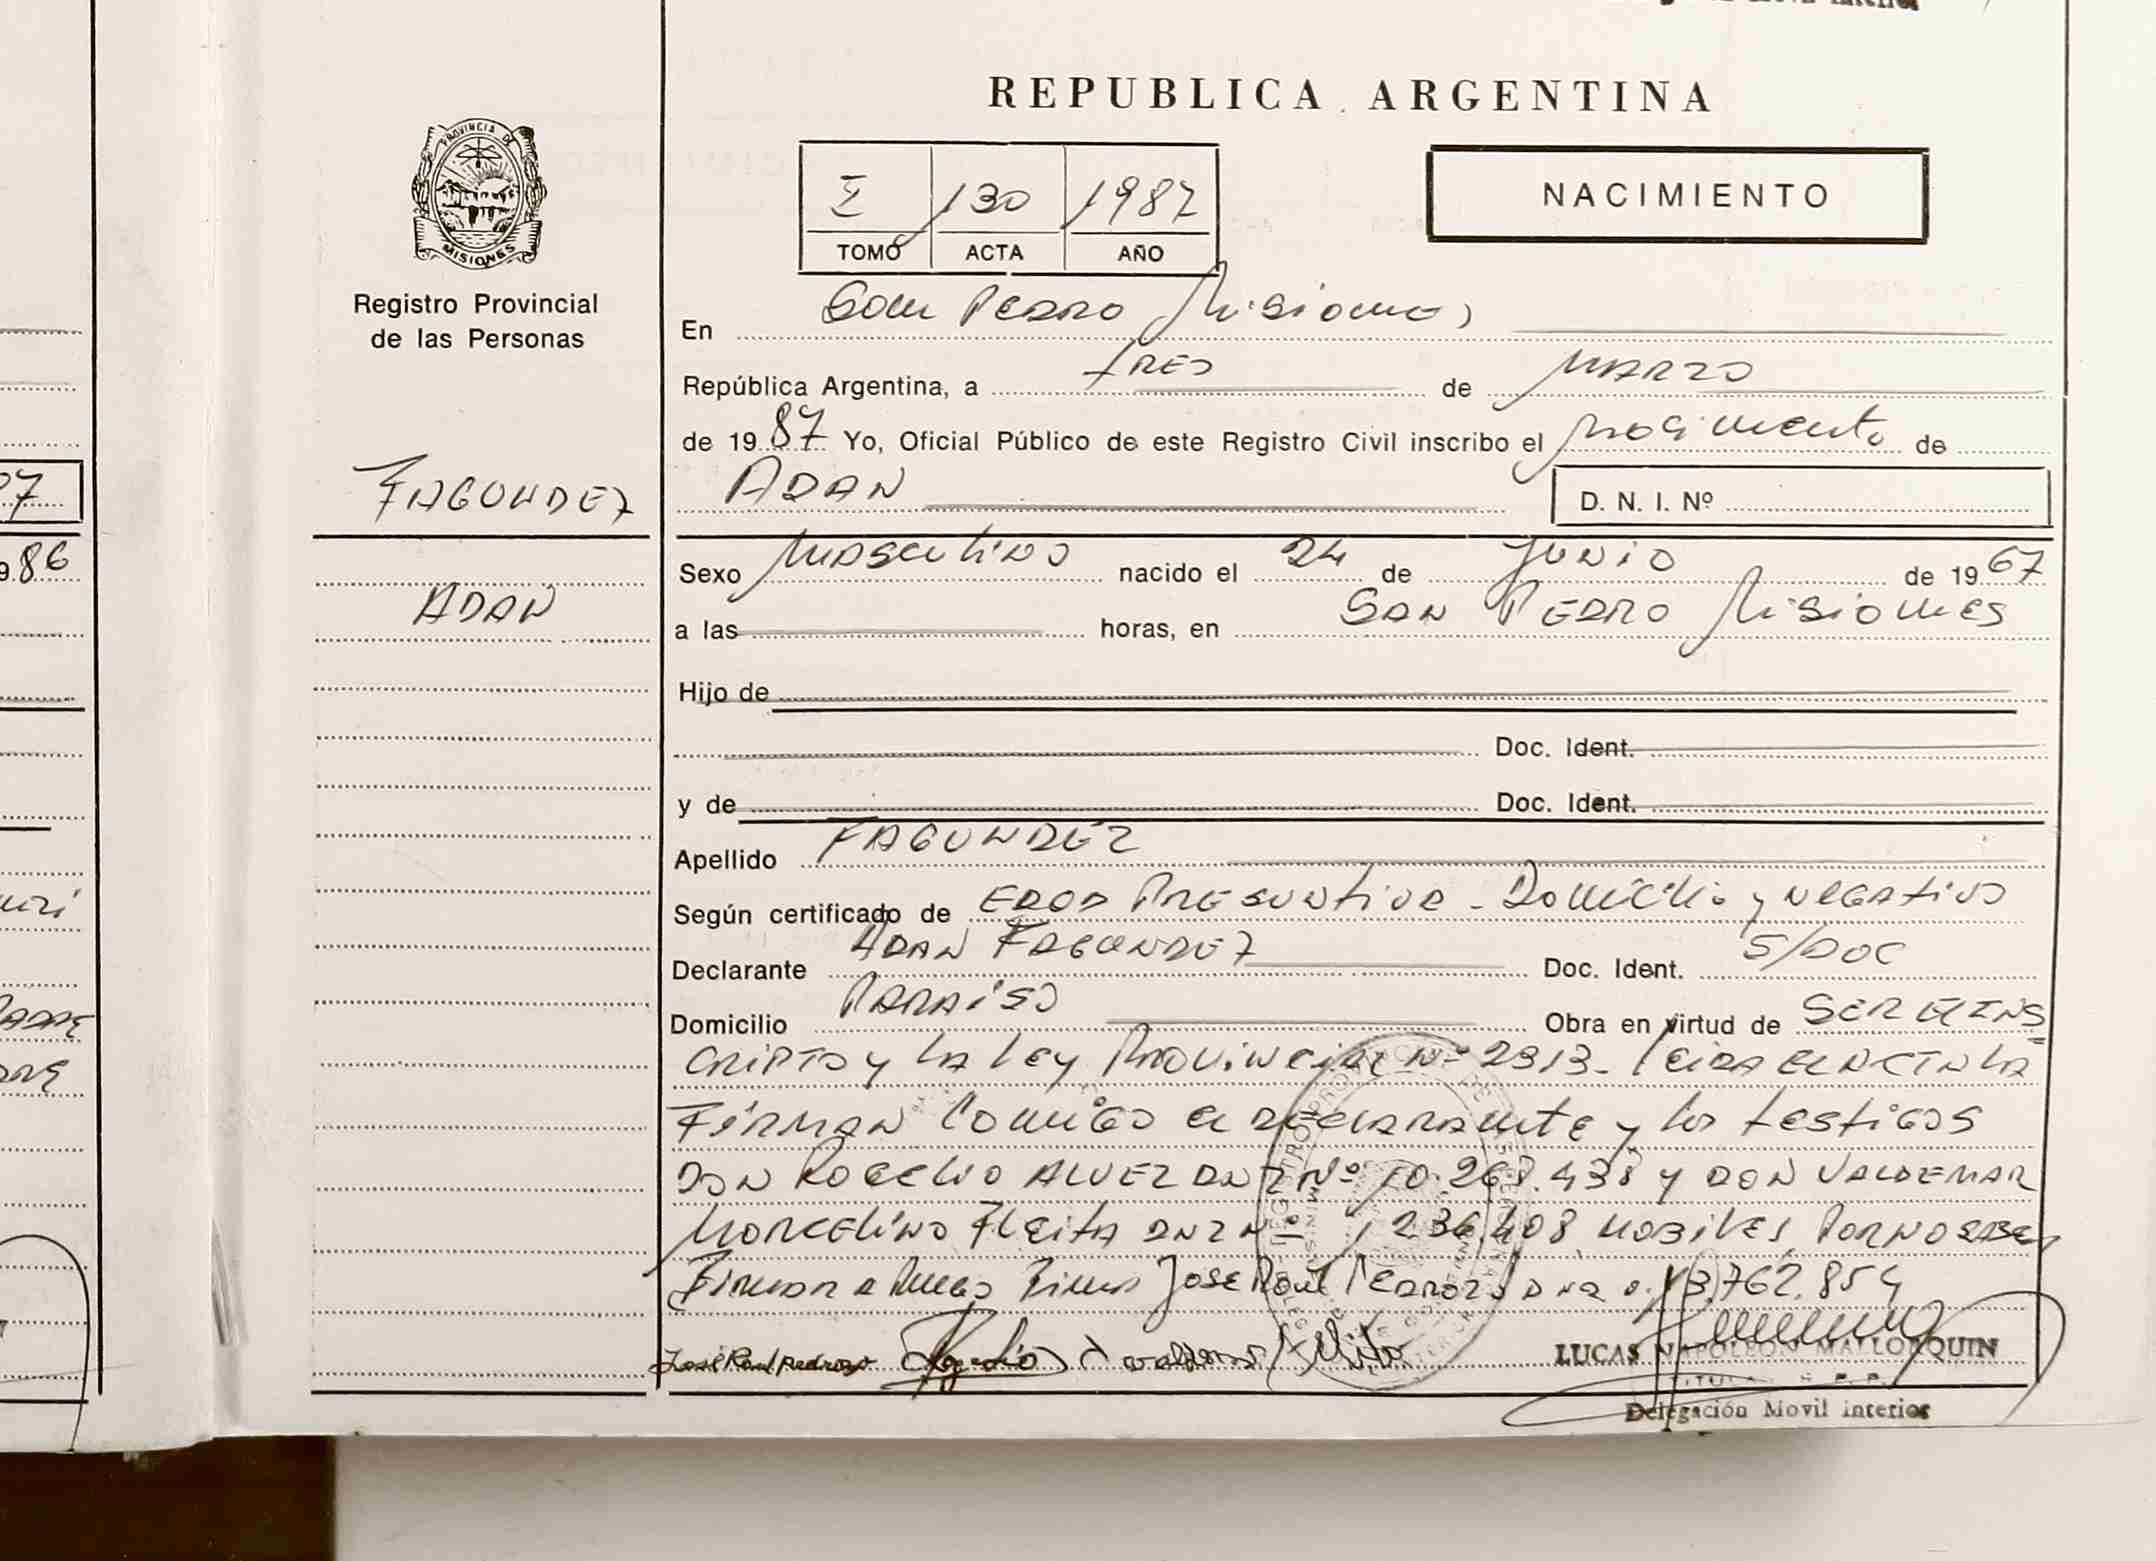 REPUBLICA ARGENTINA
PROVINCIA DE
MISIONES
I 130 1987
TOMO ACTA AÑO
NACIMIENTO
Registro Provincial
de las Personas
En San Pedro Misiones,
República Argentina, a tres de Marzo
de 19 87 Yo, Oficial Público de este Registro Civil inscribo el nacimiento de
FAGUNDEZ
ADAN D. N. I. Nº
Sexo Masculino nacido el 24 de Junio de 19 67
ADAN
a las horas, en San Pedro Misiones
Hijo de
Doc. Ident.
y de Doc. Ident.
Apellido FAGUNDEZ
Según certificado de EDAD PRESUNTIVA - Domicilio y NEGATIVO
Declarante ADAN FAGUNDEZ Doc. Ident. S/DOC
Domicilio PARAISO Obra en virtud de SER EL INS
CRIPTO y LA LEY PROVINCIAL Nº 2313. Leida el ACTA LA
Firman Conmigo el declarante y los testigos
DON ROGELIO ALVEZ DNI Nº 10.268.438 y DON VALDEMAR
MARCELINO Fleita DNI Nº 236.408 HABILES, POR NO SABER
Firmar a Ruego Firma JOSE RAUL PEDROZO 762.854
José Raul pedrozo Rogelio valdemar
LUCAS NAPOLEON MALLORQUIN
TITULAR R. P. P.
Delegación Movil interior
97
9.86